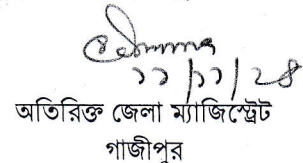 ১১/১১/২৪
অতিরিক্ত জেলা ম্যাজিস্ট্রেট
গাজীপুর